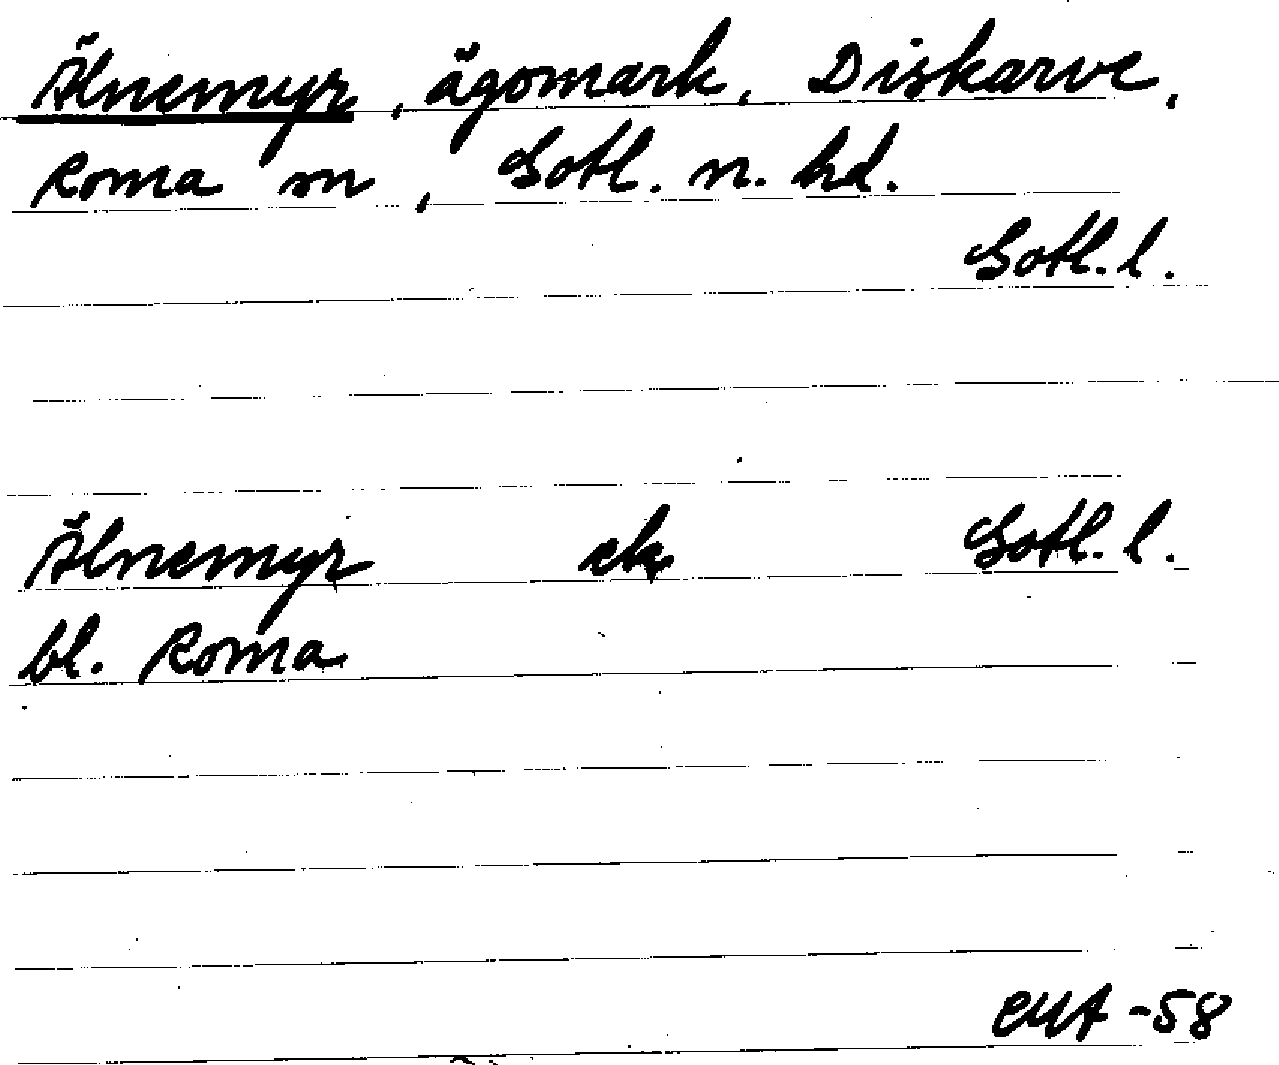 Älnemyr, ägomark, Diskarve,
Roma sn, Gotl. n. hd.
Gotl. l.
Älnemyr ek Gotl. l.
bl. Roma
CMA -58